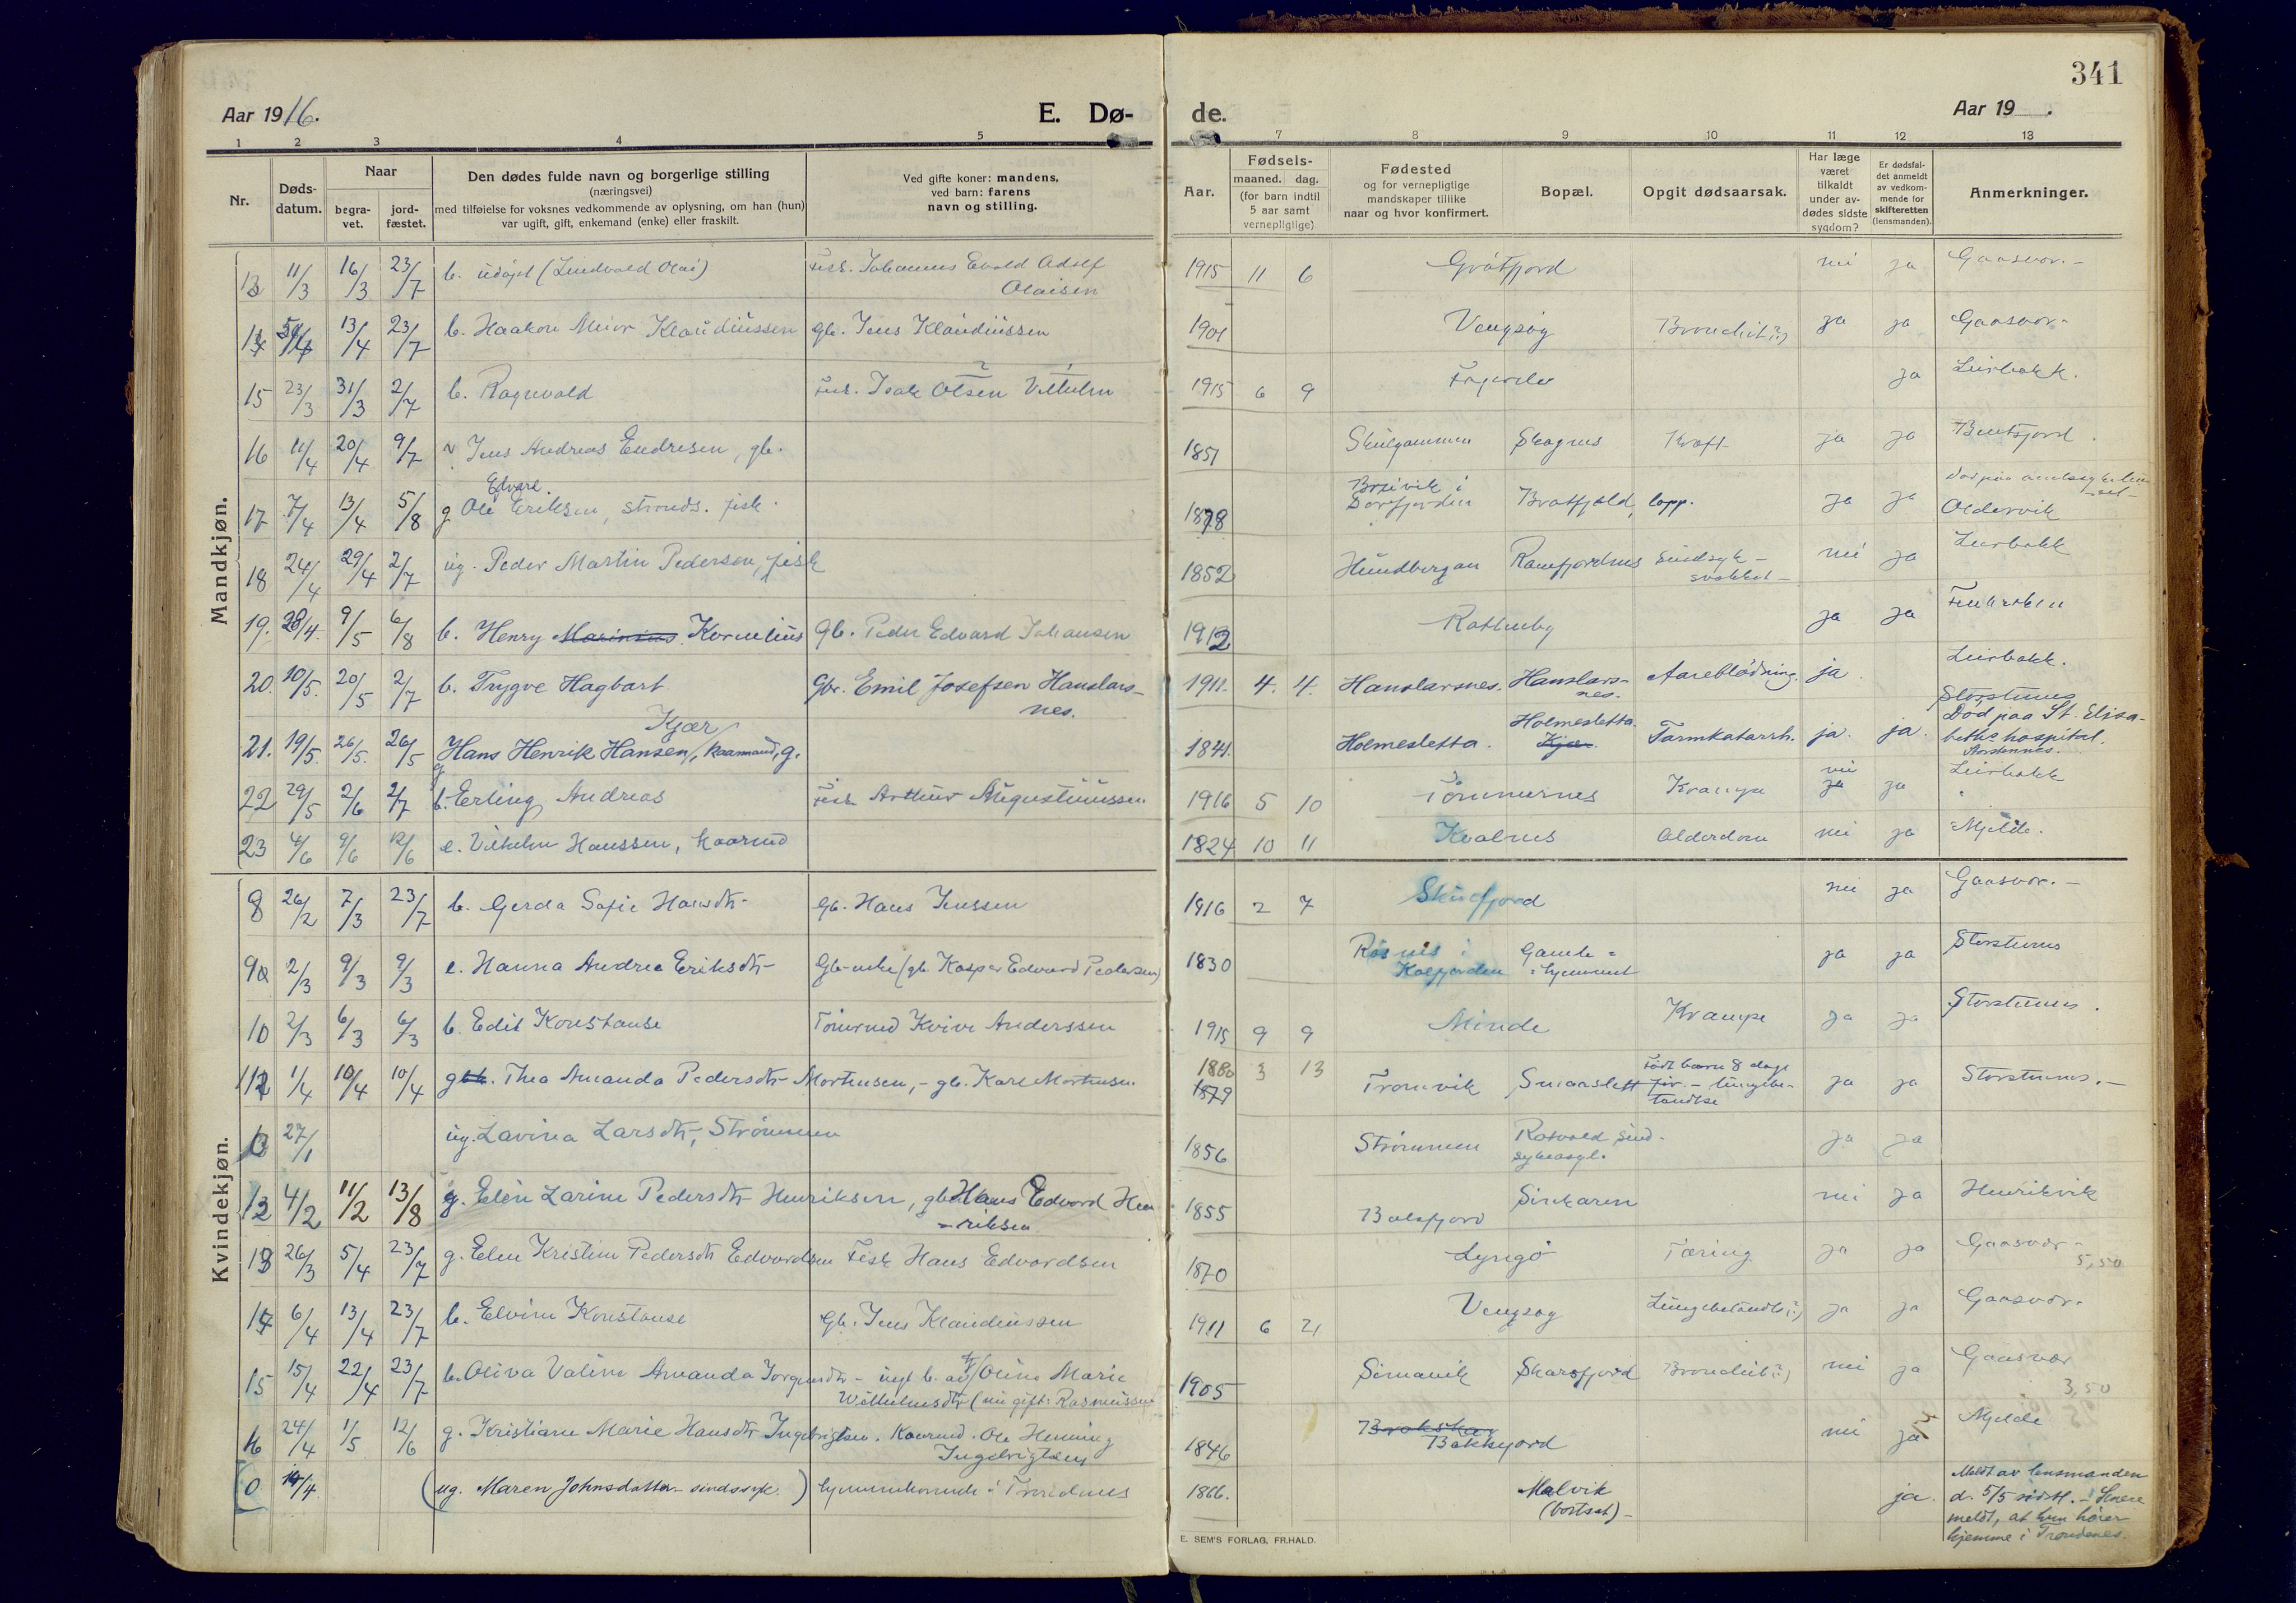 341
Aar 1916.
E. Dø-
de.
Aar 19 .
1 2 3 4 5 7 8 9 10 11 12 13
Nr.
Døds-
datum.
Naar
begra-
vet.
jord-
fæstet.
Den dødes fulde navn og borgerlige stilling
(næringsvei)
med tilføielse for voksnes vedkommende av oplysning, om han (hun)
var ugift, gift, enkemand (enke) eller fraskilt.
Ved gifte koner: mandens,
ved barn: farens
navn og stilling.
Aar.
Fødsels-
maaned. dag.
(for barn indtil
5 aar samt
vernepligtige)
Fødested
og for vernepligtige
mandskaper tillike
naar og hvor konfirmert.
Bopæl.
Opgit dødsaarsak.
Har læge
været
tilkaldt
under av-
dødes sidste
sygdom?
Er dødsfal-
det anmeldt
av vedkom-
mende for
skifteretten
(lensmanden).
Anmerkninger.
Mandkjøn.
13 11/3 16/3 23/7 b. udøpt (Lindvald Olai) Fisk. Johannes Evald Adolf
Olaisen 1915 11 6 Grøtfjord nei ja Gaasvær.-
14 13/4 23/7 b. Haakon Meier Klaudiussen gb. Jens Klaudiussen 1901 Vengsøy Bronchit(?) ja ja Gaasvær-
15 23/3 31/3 2/7 b. Ragnvald Fisk. Isak Olsen Vilhelm 1915 6 9 ja Leirbakk.
16 11/4 20/4 9/7 Jens Andreas Endresen, gb. 1851 Skulgammen Skognes Kræft ja ja Bentsjord.
17 7/4 13/4 5/8 g Ole Edvard Eriksen, strands. fisk. 1878 Breivik i
Oldervik
18 24/4 29/4 2/7 ug. Peder Martin Pedersen, fisk 1852 Hundbergan Ramfjordnes Sindsyk- nei ja Leirbakk
19. 28/4. 9/5 6/8 b. Henry Marinius Kornelius Gb. Peder Edvard Johansen 1912 ja ja
20. 10/5. 20/5 2/7 b. Trygve Hagbart Gbr. Emil Josefsen Hanslars-
nes. 1911. 4. 4. Hanslarsnes. Hanslars-
nes. Aareblødning. ja. Leirbakk.
21. 19/5. 26/5. 26/5 Hans Henrik Hansen Kjær, kaarmand, g. 1841. Holmesletta. Holmesletta.
Kjær. Tarmkatarrh. ja. ja. Storstennes
Død paa St. Elisa-
beths hospital.
22 29/5 2/6 2/7 b. Erling Andreas Fisk Arthur Augustinussen 1916 5 10 Tømmernes Krampe nei
ja ja Leirbakk
23 4/6 9/6 12/6 e. Vilhelm Hanssen, kaarmd 1824 10 11 Kvalnes Alderdom nei ja Mjelde.
Kvindekjøn.
8 26/2 7/3 23/7 b. Gerda Sofie Hansdtr- gb. Hans Jenssen 1916 2 7 Skulsfjord nei ja Gaasvær.-
9 2/3 9/3 9/3 e. Hanna Andrea Eriksdtr- Gb-enke (gb. Kasper Edvard Pedersen) 1830 Gamle=
=hjemmet ja ja Storstennes
10 2/3 6/3 6/3 b. Edit Konstanse 1915 9 9 Minde Krampe ja ja Storstennes.
1/4 10/4 10/4 g Thea Amanda Pedersdtr- Mortensen, - gb. Karl Mortensen 1880
1879 3 13 Tromvik Smaaslett født barn 8 dage
før - lungebe-
tændlse ja ja Storstennes.-
27/1 ug. Lavina Larsdtr, Strømmen 1856 Strømmen Rotvold sind-
sykeasyl. ja ja
4/2 11/2 13/8 g. Elen Larine Pedersdtr Henriksen, gb Hans Edvard Hen
=riksen 1855 Balsfjord nei ja Henrikvik
26/3 5/4 23/7 g. Elen Kristine Pedersdtr Edvardsen Fisk Hans Edvardsen 1870 Lyngø Tæring ja ja Gaasvær-
5,50
14 6/4 13/4 23/7 b. Elvine Konstanse Gb. Jens Klaudiussen 1911 6 21 Vengsøy Lungebetændls(?) ja ja Gaasvær-
15 15/4 22/4 23/7 b. Oliva Valine Amanda Jørgensdtr- uegt b. av Oline Marie
Wilhelmsdtr (nu gift: Rasmussen 1905 Simavik Skarsfjord Bronchit(?) nei ja Gaasvær
3,50
16 24/4 1/5 12/6 g. Kristiane Marie Hansdtr Ingebrigtsen. Kaarmd. Ole Henning
Ingebrigtsen 1846 Bakkejord nei ja Mjelde
0 14/4 (ug. Maren Johnsdatter- sindssyk.) hjemmehørende i Trondenes 1866. Malvik
(bortsat)- ja. Meldt av lensmanden
d. 5/5 - Senere
meldt, at hun hører
hjemme i Trondenes.
E. SEM'S FORLAG, FR.HALD.